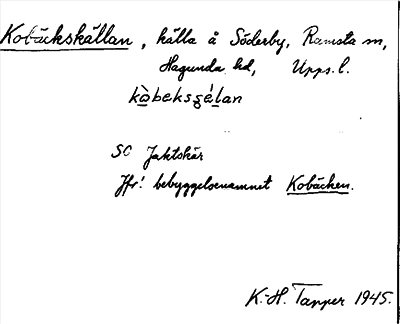 Kobäckskällan, källa å Söderby, Ramsta sn,
Hagunda hd, Upps. l.
kò̱beksʂé̱ḻan
SO Jaktskär
Jfr! bebyggelsenamnet Kobäcken.
K.-H. Tapper 1945.